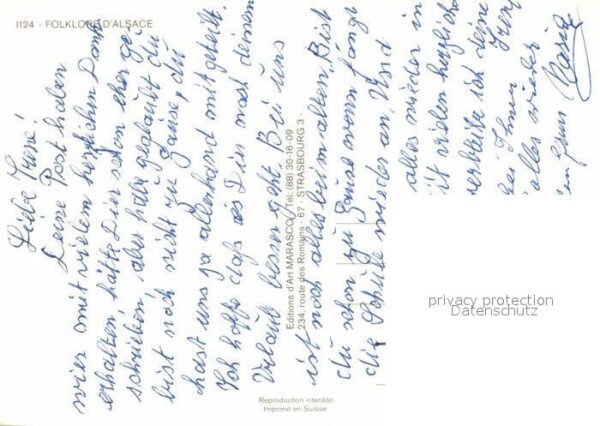 1124 - FOLKLORE D'ALSACE
Liebe
Deine Post haben
wier mit vielem herzlichen Dank
erhalten, hätte Dir schon eher ge
schrieben, aber habe geglaubt du
bist noch nicht zu Hause, du
hast uns ja allerhand mitgeteilt.
Ich hoffe das es Dir nach deinem
Urlaub besser geht. Bei uns
ist noch alles beim alten. Bist
du schon zu Hause wenn fängt
die Schule wieder an. Und
alles wieder in
vielen herzlich
ich deine
alles wieder
Editions d'Art MARASCO - Tél: (88) 30-16-09
234, route des Romains - 67 - STRASBOURG 3
Reproduction interdite
Imprimé en Suisse
privacy protection
Datenschutz